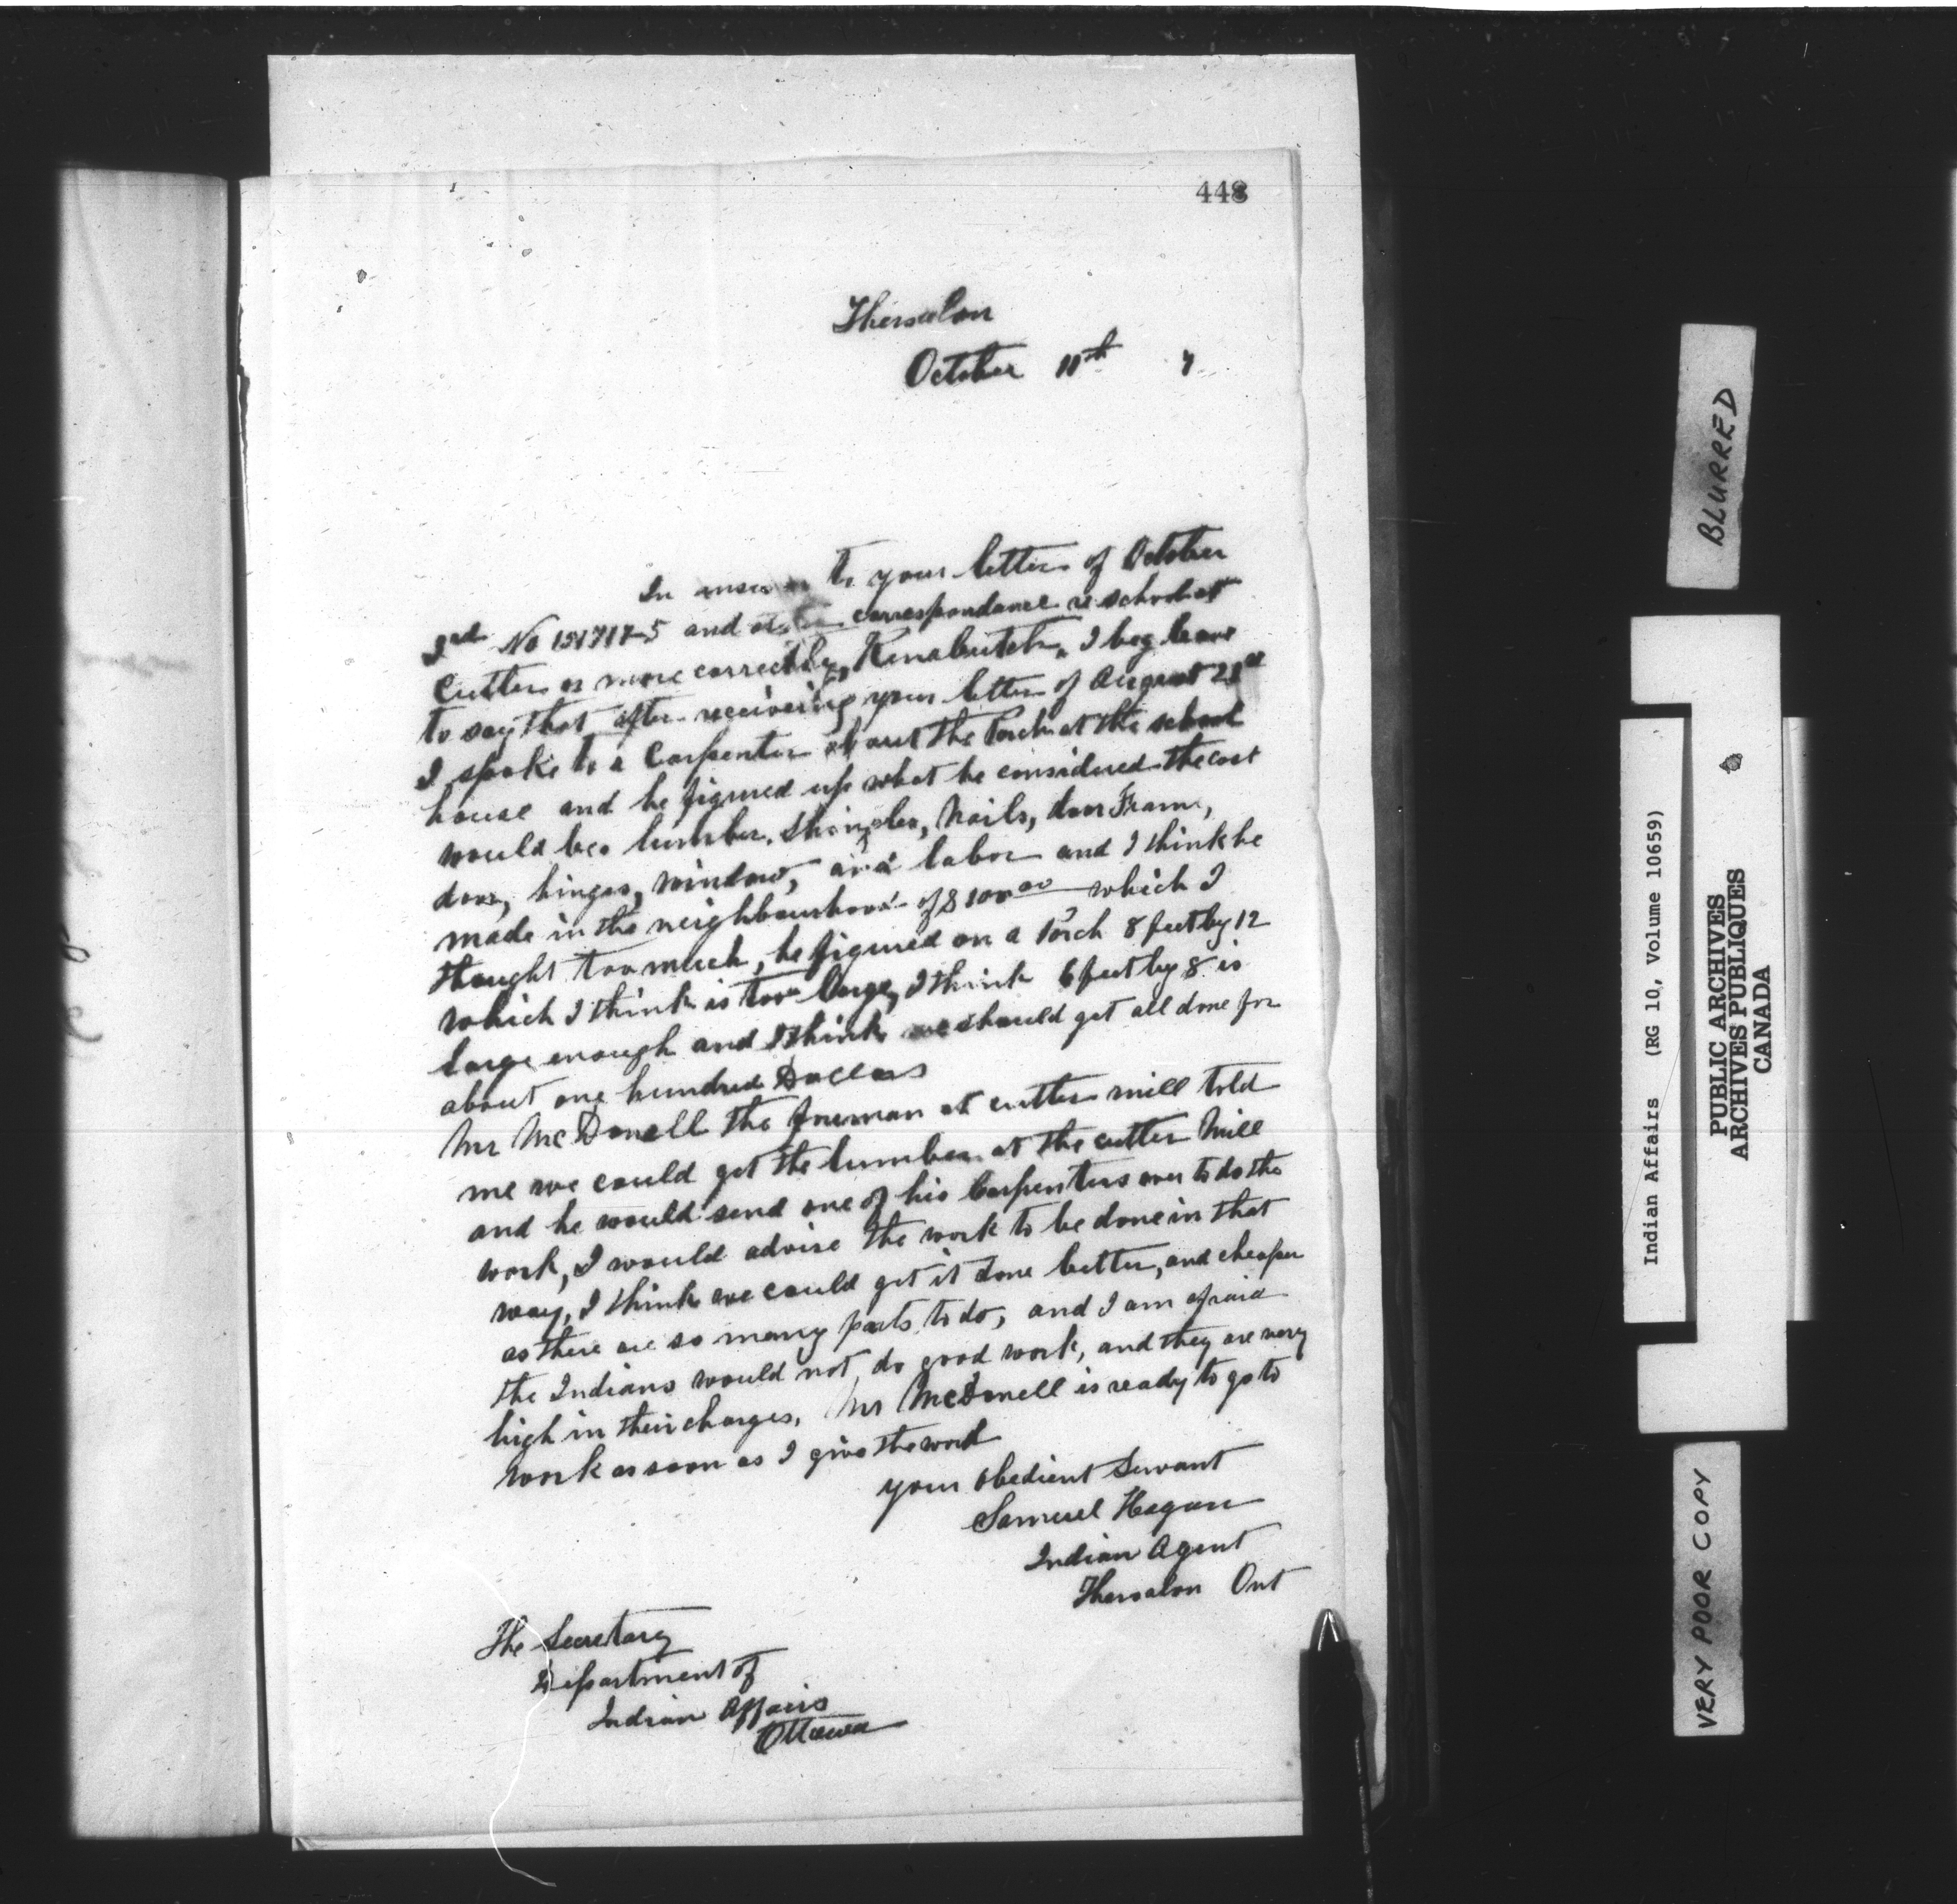 448
Thessalon
October 11th 7
In answer to your letter of October
3rd No 121717-5 and other correspondance re school at
Cutler or more correctly Kenabutch, I beg leave
to say that after receiving your letter of August 21st
I spoke to a Carpenter about the Porch at the school
house and he figured up what he considered the cost
would be, lumber, shingles, Nails, door Frame,
door, hinges, window, and labor and I think he
made in the neighbourhood of $100.00 which I
thought too much, he figured on a Porch 8 feet by 12
which I think is too large, I think 6 feet by 8 is
large enough and I think we should get all done for
about one hundred Dollars
Mr McDonell the foreman at cutler mill told
me we could get the lumber at the cutler Mill
and he would send one of his Carpenters over to do the
work, I would advise the work to be done in that
way, I think we could get it done better, and cheaper
as there are so many parts to do, and I am afraid
the Indians would not do good work, and they are very
high in their charges, Mr McDonell is ready to go to
work as soon as I give the word
your obedient Servant
Samuel Hagan
Indian Agent
Thessalon Ont
The Secretary
Department of
Indian Affairs
Ottawa
BLURRED
Indian Affairs (RG 10, Volume 10659)
PUBLIC ARCHIVES
ARCHIVES PUBLIQUES
CANADA
VERY POOR COPY